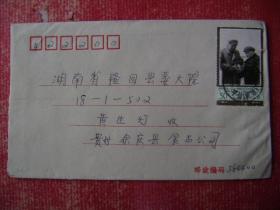 422200
湖南省隆回县委大院
18-1-502
黄生灯 收
贵州余庆县食品公司
邮政编码 564400